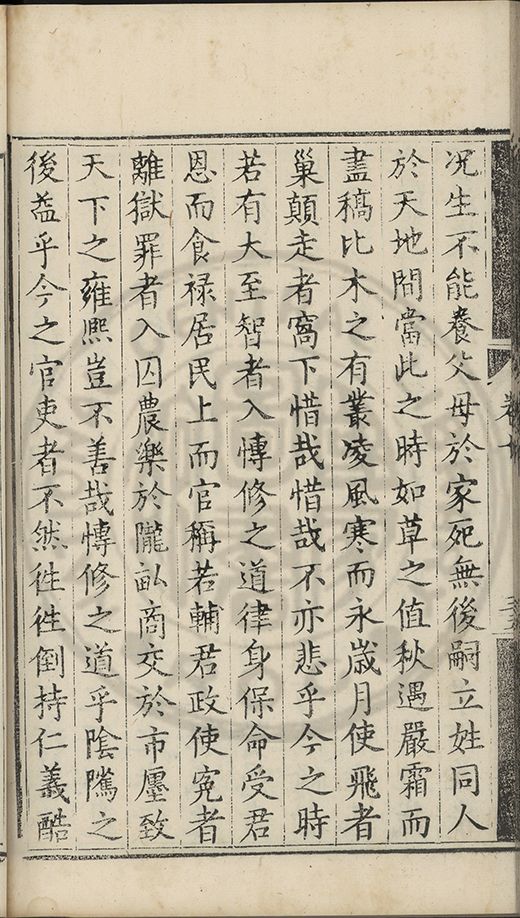 况生不能養父母於家死無後嗣立姓同人
於天地間當此之時如草之值秋遇嚴霜而
盡稿比木之有叢凌風寒而永歲月使飛者
巢顛走者窩下惜哉惜哉不亦悲乎今之時
若有大至智者入慱修之道律身保命受君
恩而食禄居民上而官稱若輔君政使寃者
離獄罪者入囚農樂於隴畝商交於市廛致
天下之雍熈豈不善哉慱修之道乎隂隲之
後益乎今之官吏者不然徃徃倒持仁義酷